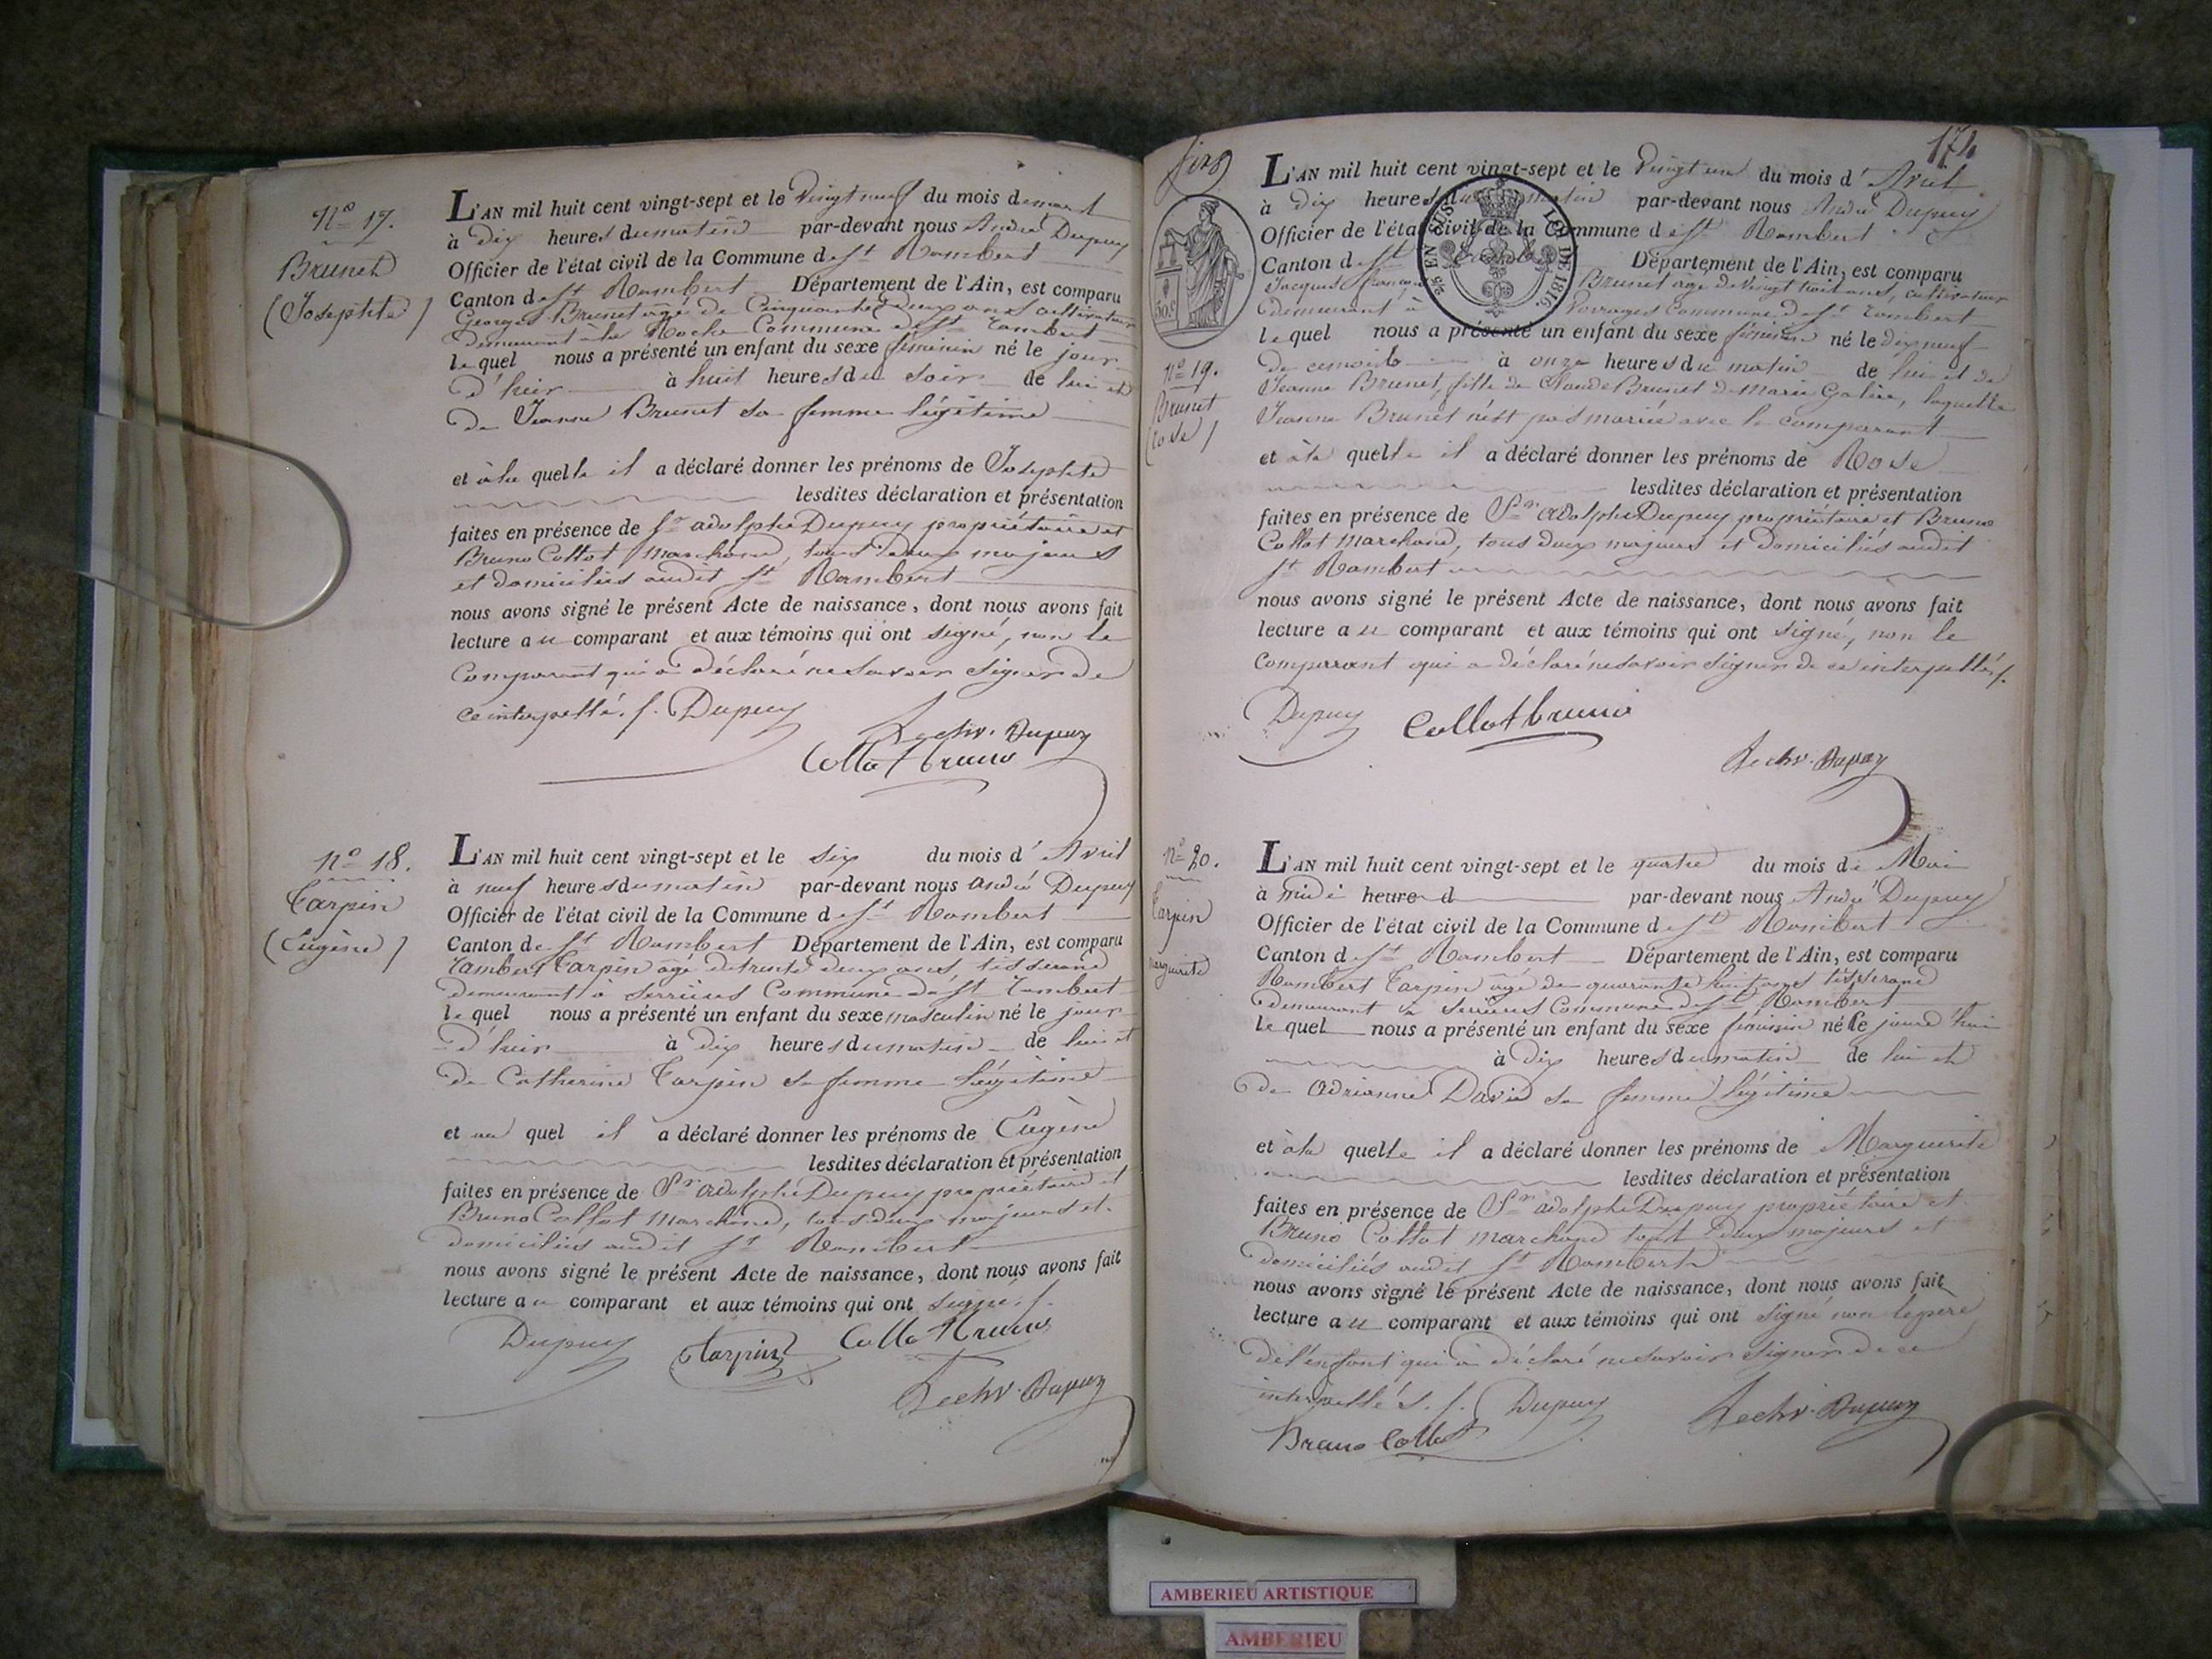 N.o 17.
Brunet
(Josephte)
L'AN mil huit cent vingt-sept et le Vingt neuf du mois de mars
à dix heures du matin par-devant nous André Dupuy
Officier de l'état civil de la Commune de St Rambert
Canton de St Rambert Département de l'Ain, est comparu
Georges Brunet âgé de Cinquante deux ans cultivateur
demeurant à la Roche Commune de St Rambert
le quel nous a présenté un enfant du sexe féminin né le jour
d'hier à huit heures du soir de lui et
de Jeanne Brunet sa femme légitime
et à la quelle il a déclaré donner les prénoms de Josephte
lesdites déclaration et présentation
faites en présence de Sr adolphe Dupuy propriétaire et
Bruno Collot Marchand, tous deux majeurs
et domiciliés audit St Rambert
nous avons signé le présent Acte de naissance, dont nous avons fait
lecture au comparant et aux témoins qui ont signé, non le
Comparant qui a déclaré ne savoir signer de
ce interpellé. /. Dupuy
Dupuy
Collot bruno
N.o 18.
Tarpin
(Eugène)
L'AN mil huit cent vingt-sept et le six du mois d'Avril
à neuf heures du matin par-devant nous André Dupuy
Officier de l'état civil de la Commune de St Rambert
Canton de St Rambert Département de l'Ain, est comparu
Rambert Tarpin âgé de trente deux ans, tisserand
demeurant à Serrières Commune de St Rambert
le quel nous a présenté un enfant du sexe masculin né le jour
d'hier à dix heures du matin de lui et
de Catherine Tarpin sa femme légitime
et au quel il a déclaré donner les prénoms de Eugène
lesdites déclaration et présentation
faites en présence de Sr adolphe Dupuy propriétaire et
Bruno Collot Marchand, tous deux majeurs et
domiciliés audit St Rambert
nous avons signé le présent Acte de naissance, dont nous avons fait
lecture au comparant et aux témoins qui ont signé. /.
Dupuy Tarpin Collot bruno
Dupuy
174
50 c.
25 EN SUS
LOI DE 1816.
N.o 19.
Brunet
(rose)
L'AN mil huit cent vingt-sept et le Vingt un du mois d'Avril
à dix heures du matin par-devant nous André Dupuy
Officier de l'état civil de la Commune de St Rambert
Canton de St Département de l'Ain, est comparu
Jacques Brunet âgé de vingt huit ans, cultivateur
demeurant à Commune de St Rambert
le quel nous a présenté un enfant du sexe féminin né le dix neuf
de ce mois à onze heures du matin de lui et de
Jeanne Brunet, fille de Claude Brunet & de Marie Galire, laquelle
Jeanne Brunet n'est pas mariée avec le comparant
et à la quelle il a déclaré donner les prénoms de Rose
lesdites déclaration et présentation
faites en présence de Sr adolphe Dupuy propriétaire et Bruno
Collot Marchand, tous deux majeurs et domiciliés audit
St Rambert
nous avons signé le présent Acte de naissance, dont nous avons fait
lecture au comparant et aux témoins qui ont signé, non le
Comparant qui a déclaré ne savoir signer de ce interpellé /.
Dupuy Collot bruno
Dupuy
N.o 20.
Tarpin
marguerite
L'AN mil huit cent vingt-sept et le quatre du mois de Mai
à midi heure d par-devant nous André Dupuy
Officier de l'état civil de la Commune de St Rambert
Canton de St Rambert Département de l'Ain, est comparu
Rambert Tarpin âgé de quarante huit ans tisserand
demeurant à Serrières Commune de St Rambert
le quel nous a présenté un enfant du sexe féminin né le jourd'hui
à dix heures du matin de lui et
de Adrianne David sa femme légitime
et à la quelle il a déclaré donner les prénoms de Marguerite
lesdites déclaration et présentation
faites en présence de Sr adolphe Dupuy propriétaire et
Bruno Collot marchand tout deux majeurs et
domiciliés audit St Rambert
nous avons signé le présent Acte de naissance, dont nous avons fait
lecture au comparant et aux témoins qui ont signé non le père
de l'enfant qui a déclaré ne savoir signer de ce
interpellé s. /. Dupuy Dupuy
Bruno Collot
AMBERIEU ARTISTIQUE
AMBERIEU